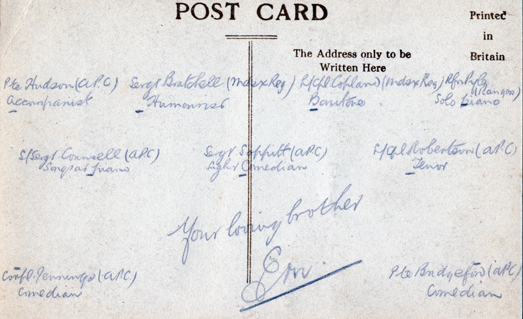 POST CARD
Printed
in
Britain
The Address only to be
Written Here
Pte Hudson (APC)
Accompanist
Sergt Bratchell (Mdsex Reg)
Humourist
L/Cpl Copland (Mdsex Reg)
Baritone
Solo Piano
S/Sergt Counsell (APC)
Sergt (APC)
Light Comedian
L/Cpl Robertson (APC)
Tenor
Your loving brother
Corpl Jennings (APC)
Comedian
Pte Bridgeford (APC)
Comedian